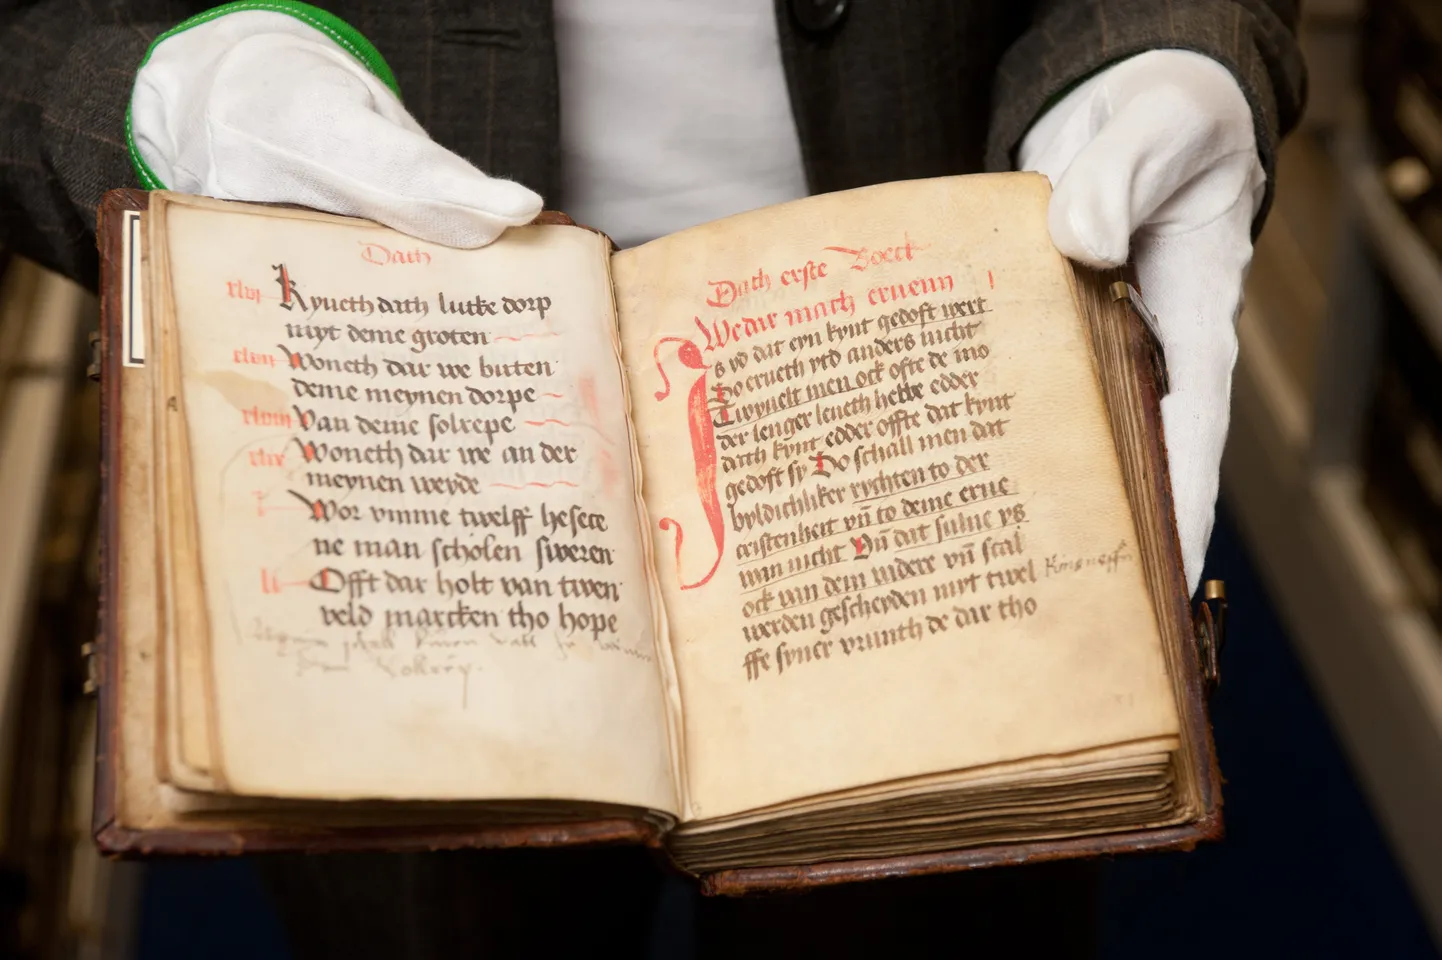 Dath
xlvi Kyueth dath lutke dorp
myt deme groten
xlvii Woneth dar we buten
deme meynen dorpe
xlviii Van deme solrepe
xlix Woneth dar we an der
meynen weyde
l Wor vmme twelff hesece
ne man scholen sweren
li Offt dar holt van twen
veld marcken tho hope
Dath erste Boeck
We dar mach eruenn I
Is yd dat eyn kynt gedoft wert
So erueth ytd anders nicht
Twyuelt men ock ofte de mo
der lenger leueth hebbe edder
dath kynt edder offte dat kynt
gedoft sy Do schall men dat
byldichliker rychten to der
cristenheit vn̄ to deme erue
wan nicht Vn̄ dat sulue ys
ock van dem videre vn̄ scal
werden gescheyden myt twel
ffe syner vrunth de dar tho